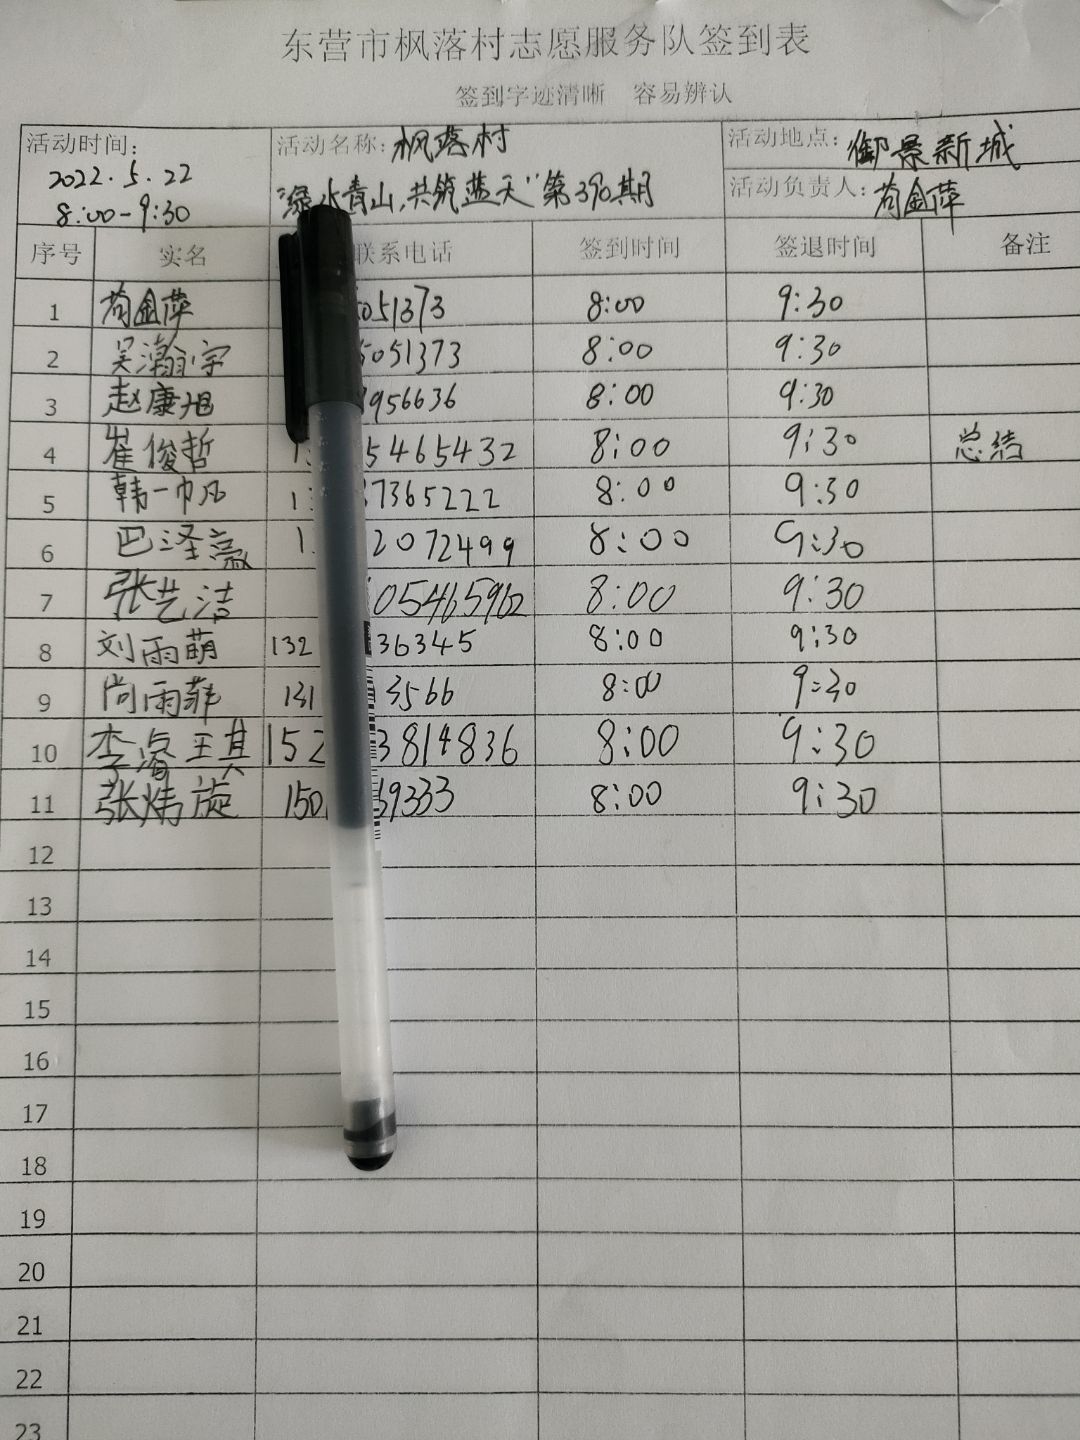 东营市枫落村志愿服务队签到表
签到字迹清晰 容易辨认
活动时间: 2022.5.22 8:00-9:30
活动名称: 枫落村 "绿水青山,共筑蓝天"第390期
活动地点: 御景新城
活动负责人: 苟金萍
序号 实名 联系电话 签到时间 签退时间 备注
1 苟金萍 5051373 8:00 9:30
2 吴瀚宇 5051373 8:00 9:30
3 赵康旭 956636 8:00 9:30
4 崔俊哲 1 5465432 8:00 9:30 总结
5 韩一帆 1 7365222 8:00 9:30
6 巴泽 1 2072499 8:00 9:30
7 张艺洁 05465962 8:00 9:30
8 刘雨萌 132 36345 8:00 9:30
9 尚雨菲 131 3566 8:00 9:30
10 李睿琪 152 3814836 8:00 9:30
11 张炜旋 150 69333 8:00 9:30
12
13
14
15
16
17
18
19
20
21
22
23